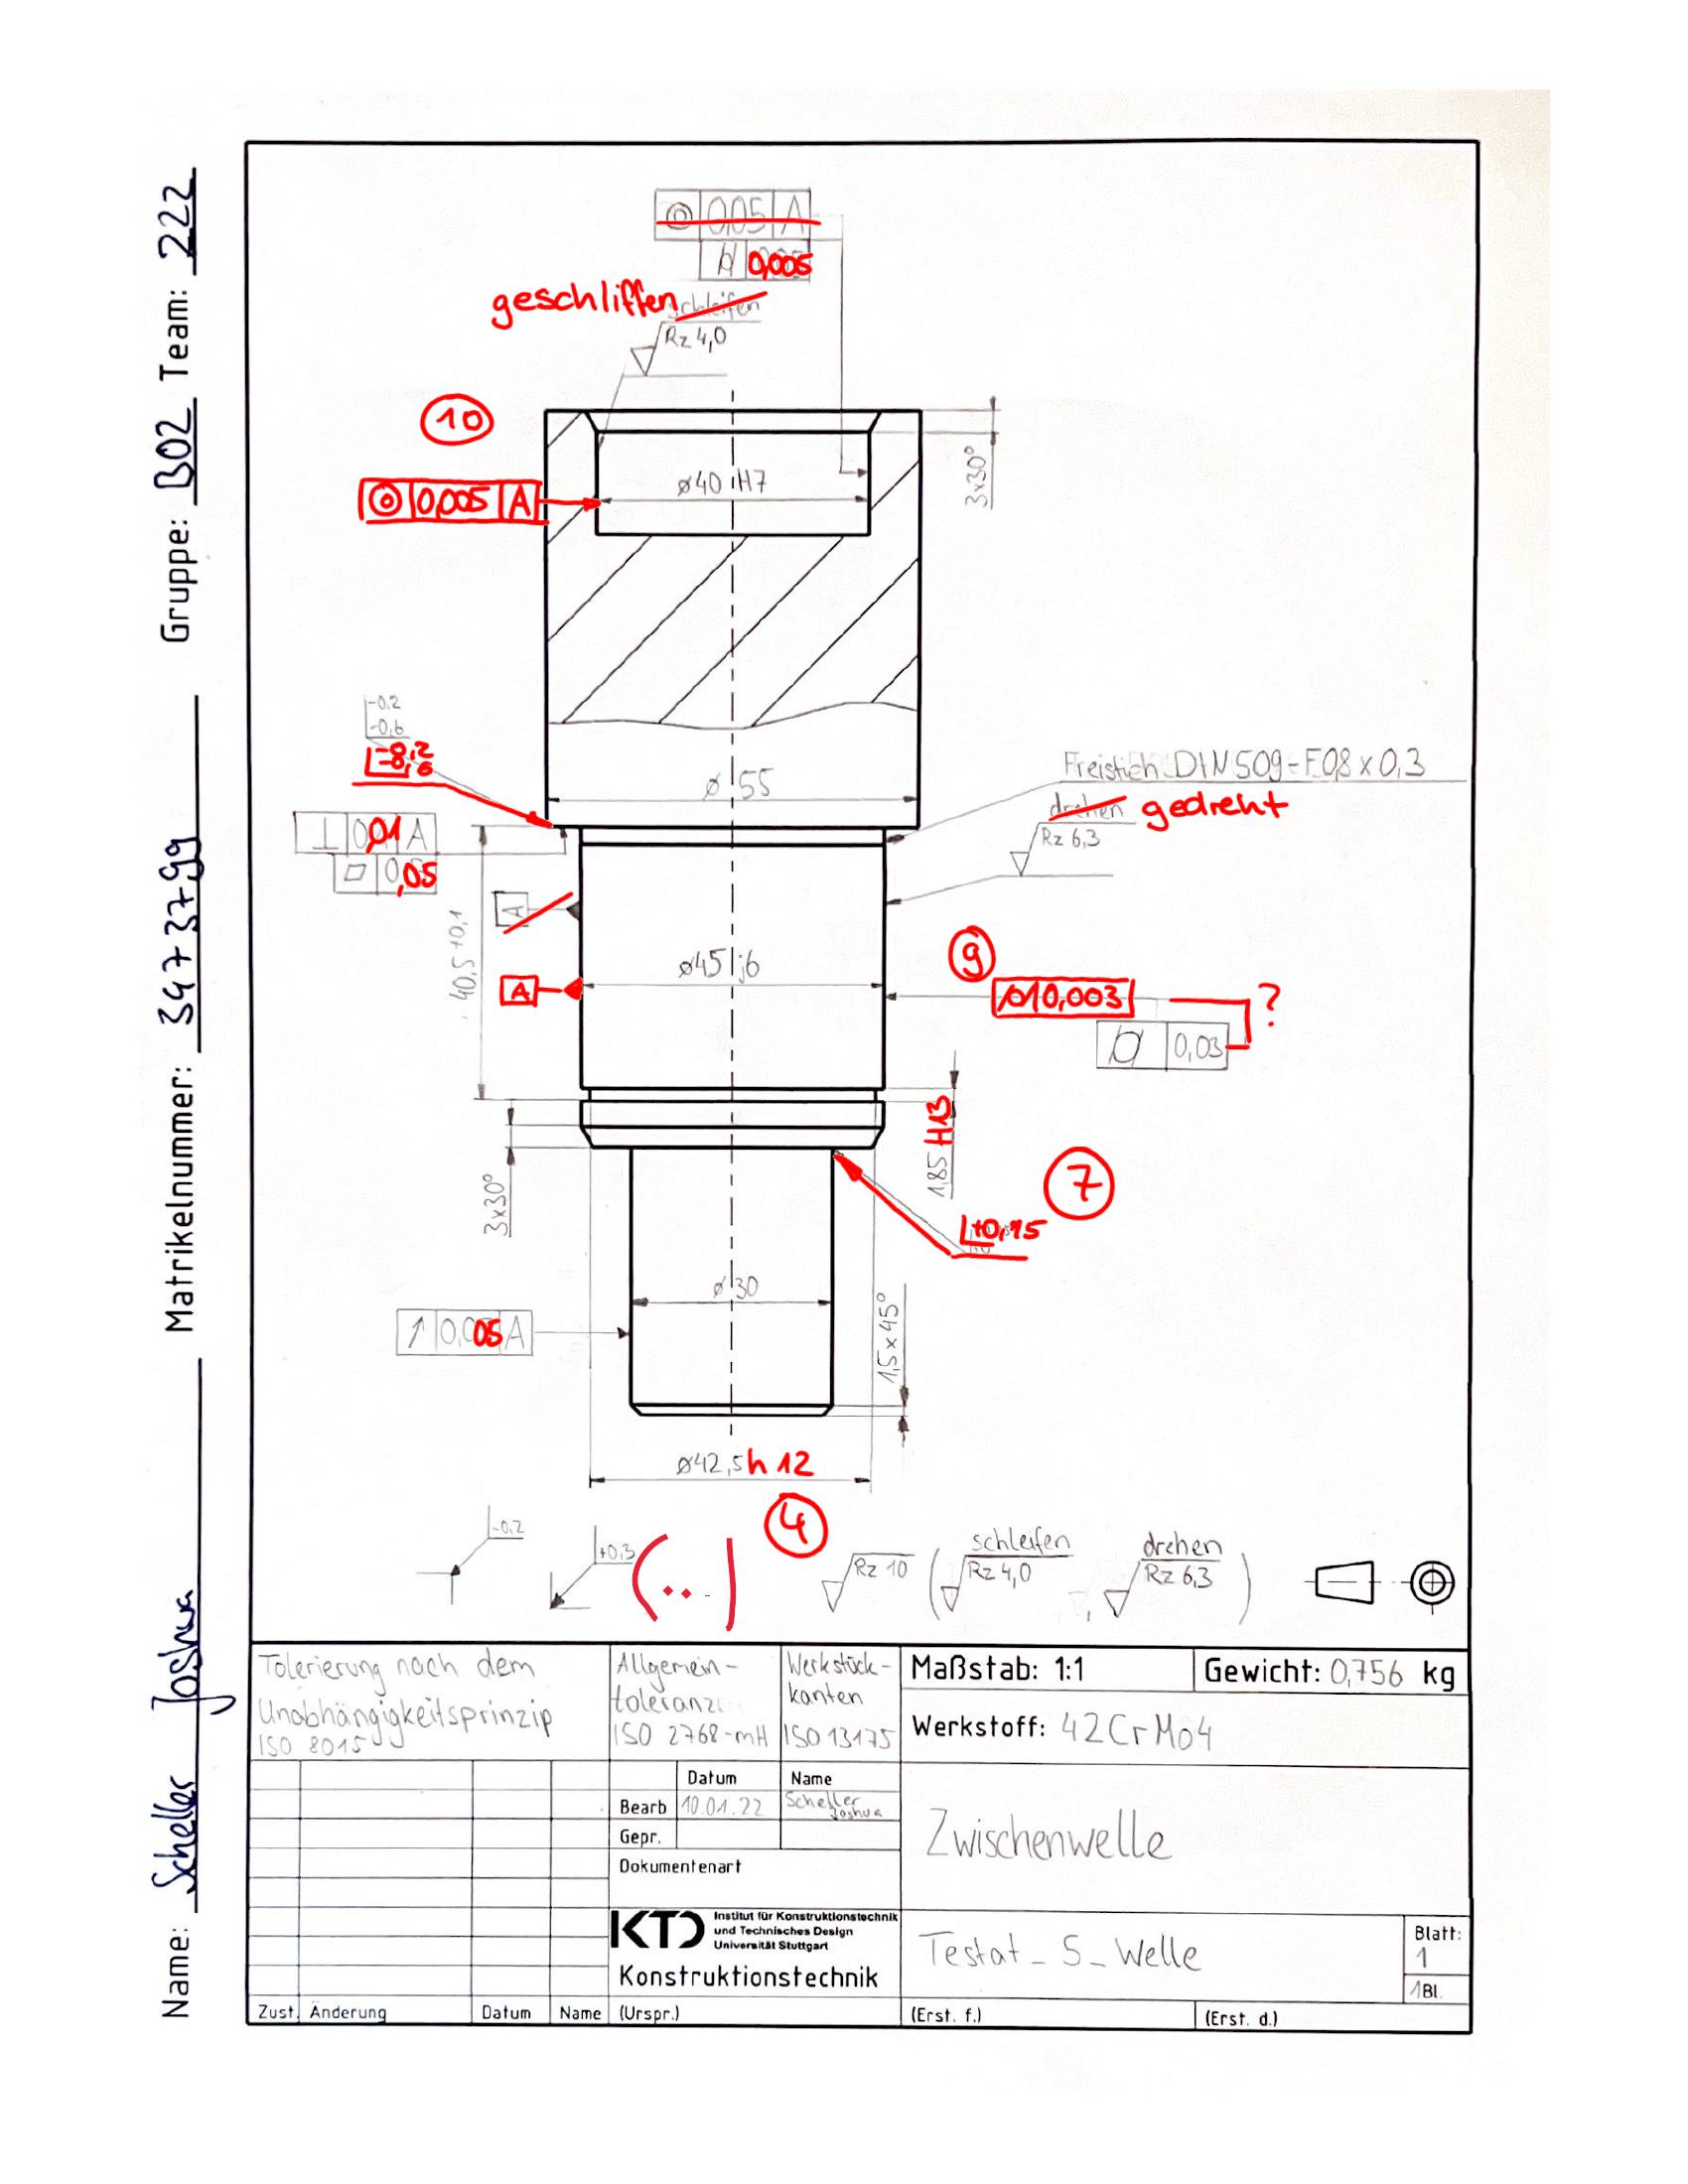 Name: Scheller Joshua Matrikelnummer: 3473799 Gruppe: B02 Team: 222
◎ 0,05 A
0,005
geschliffen schleifen
Rz 4,0
10
◎ 0,005 A
⌀40 H7
3x30°
-0,2
-0,6
-0,2
⌀55
Freistich DIN 509-F0,8x0,3
drehen gedreht
Rz 6,3
⊥ 0,01 A
⏥ 0,05
A
40,5+0,1
⌀45 j6
9
A
0,003
?
⌭ 0,03
1,85 H13
7
3x30°
+0,15
⌀30
↗ 0,005 A
1,5x45°
⌀42,5 h12
4
-0,2
+0,3
(.. )
Rz 10 ( schleifen Rz 4,0 , drehen Rz 6,3 )
Tolerierung nach dem
Unabhängigkeitsprinzip
ISO 8015
Allgemein-
toleranz
ISO 2768-mH
Werkstück-
kanten
ISO 13175
Maßstab: 1:1
Gewicht: 0,756 kg
Werkstoff: 42CrMo4
Datum Name
Bearb 10.01.22 Scheller Joshua
Gepr.
Dokumentenart
Zwischenwelle
KTD
Institut für Konstruktionstechnik
und Technisches Design
Universität Stuttgart
Konstruktionstechnik
Testat_S_Welle
Blatt:
1
1Bl.
Zust. Änderung Datum Name (Urspr.) (Erst. f.) (Erst. d.)